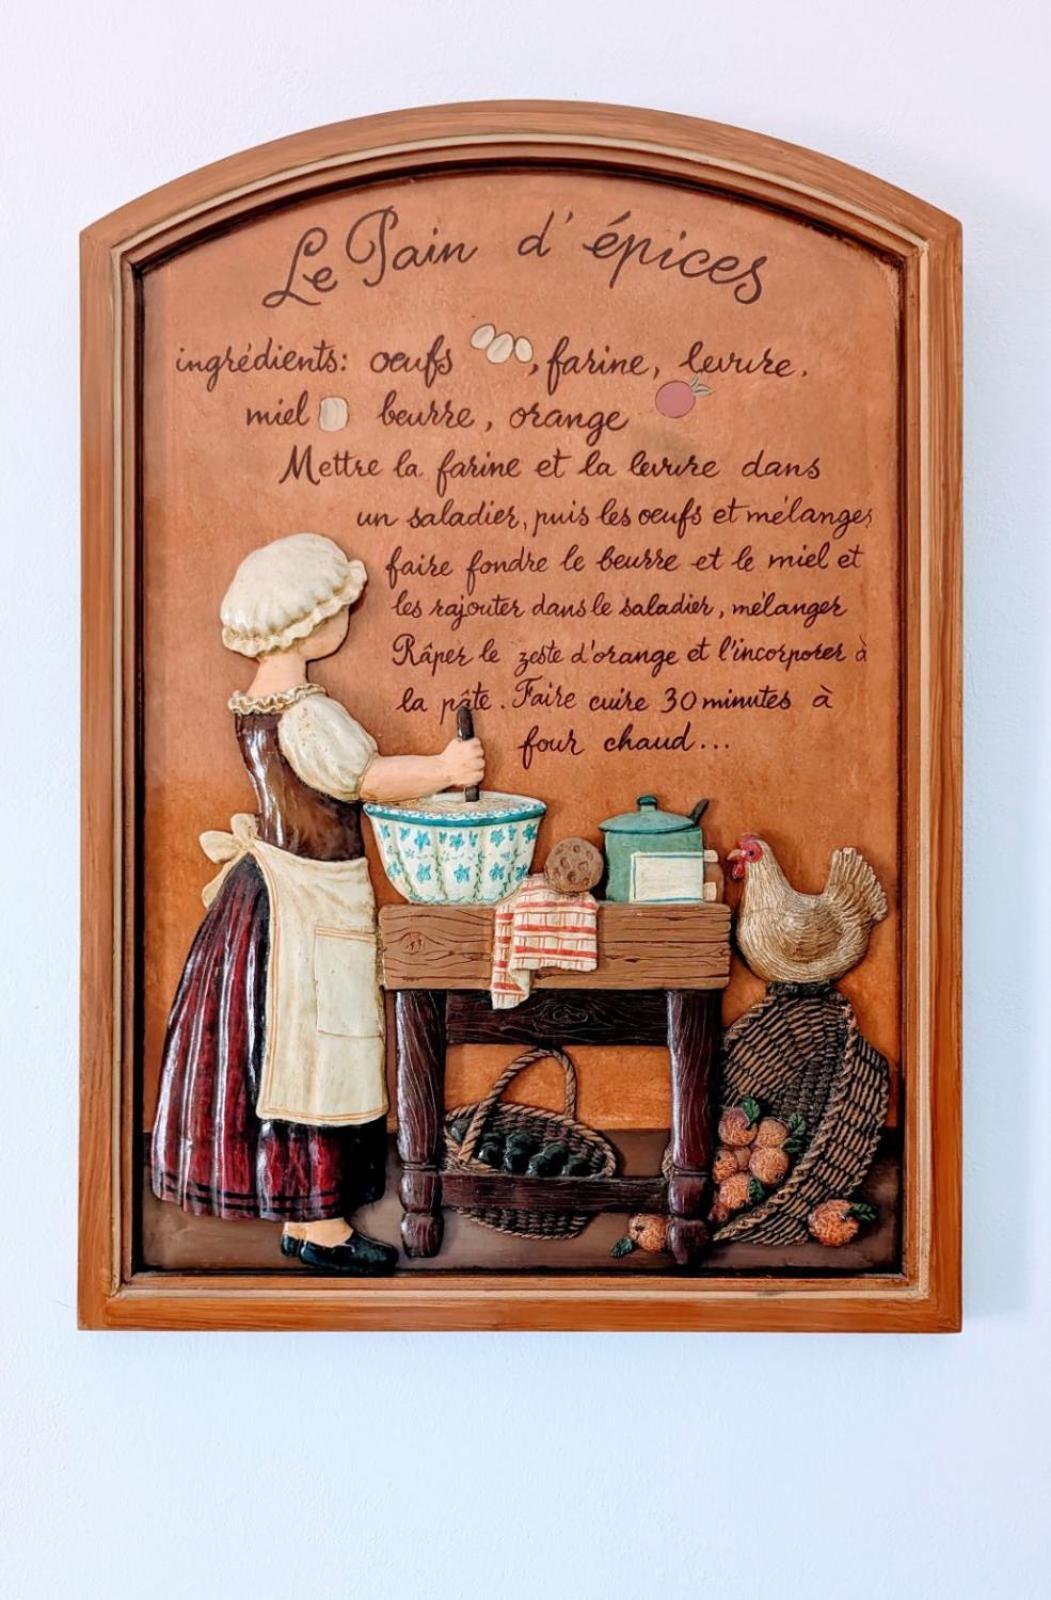 Le Pain d'épices
ingrédients: oeufs , farine, levure.
miel beurre, orange
Mettre la farine et la levure dans
un saladier, puis les oeufs et mélanger
faire fondre le beurre et le miel et
les rajouter dans le saladier, mélanger
Râper le zeste d'orange et l'incorporer à
la pâte. Faire cuire 30 minutes à
four chaud...